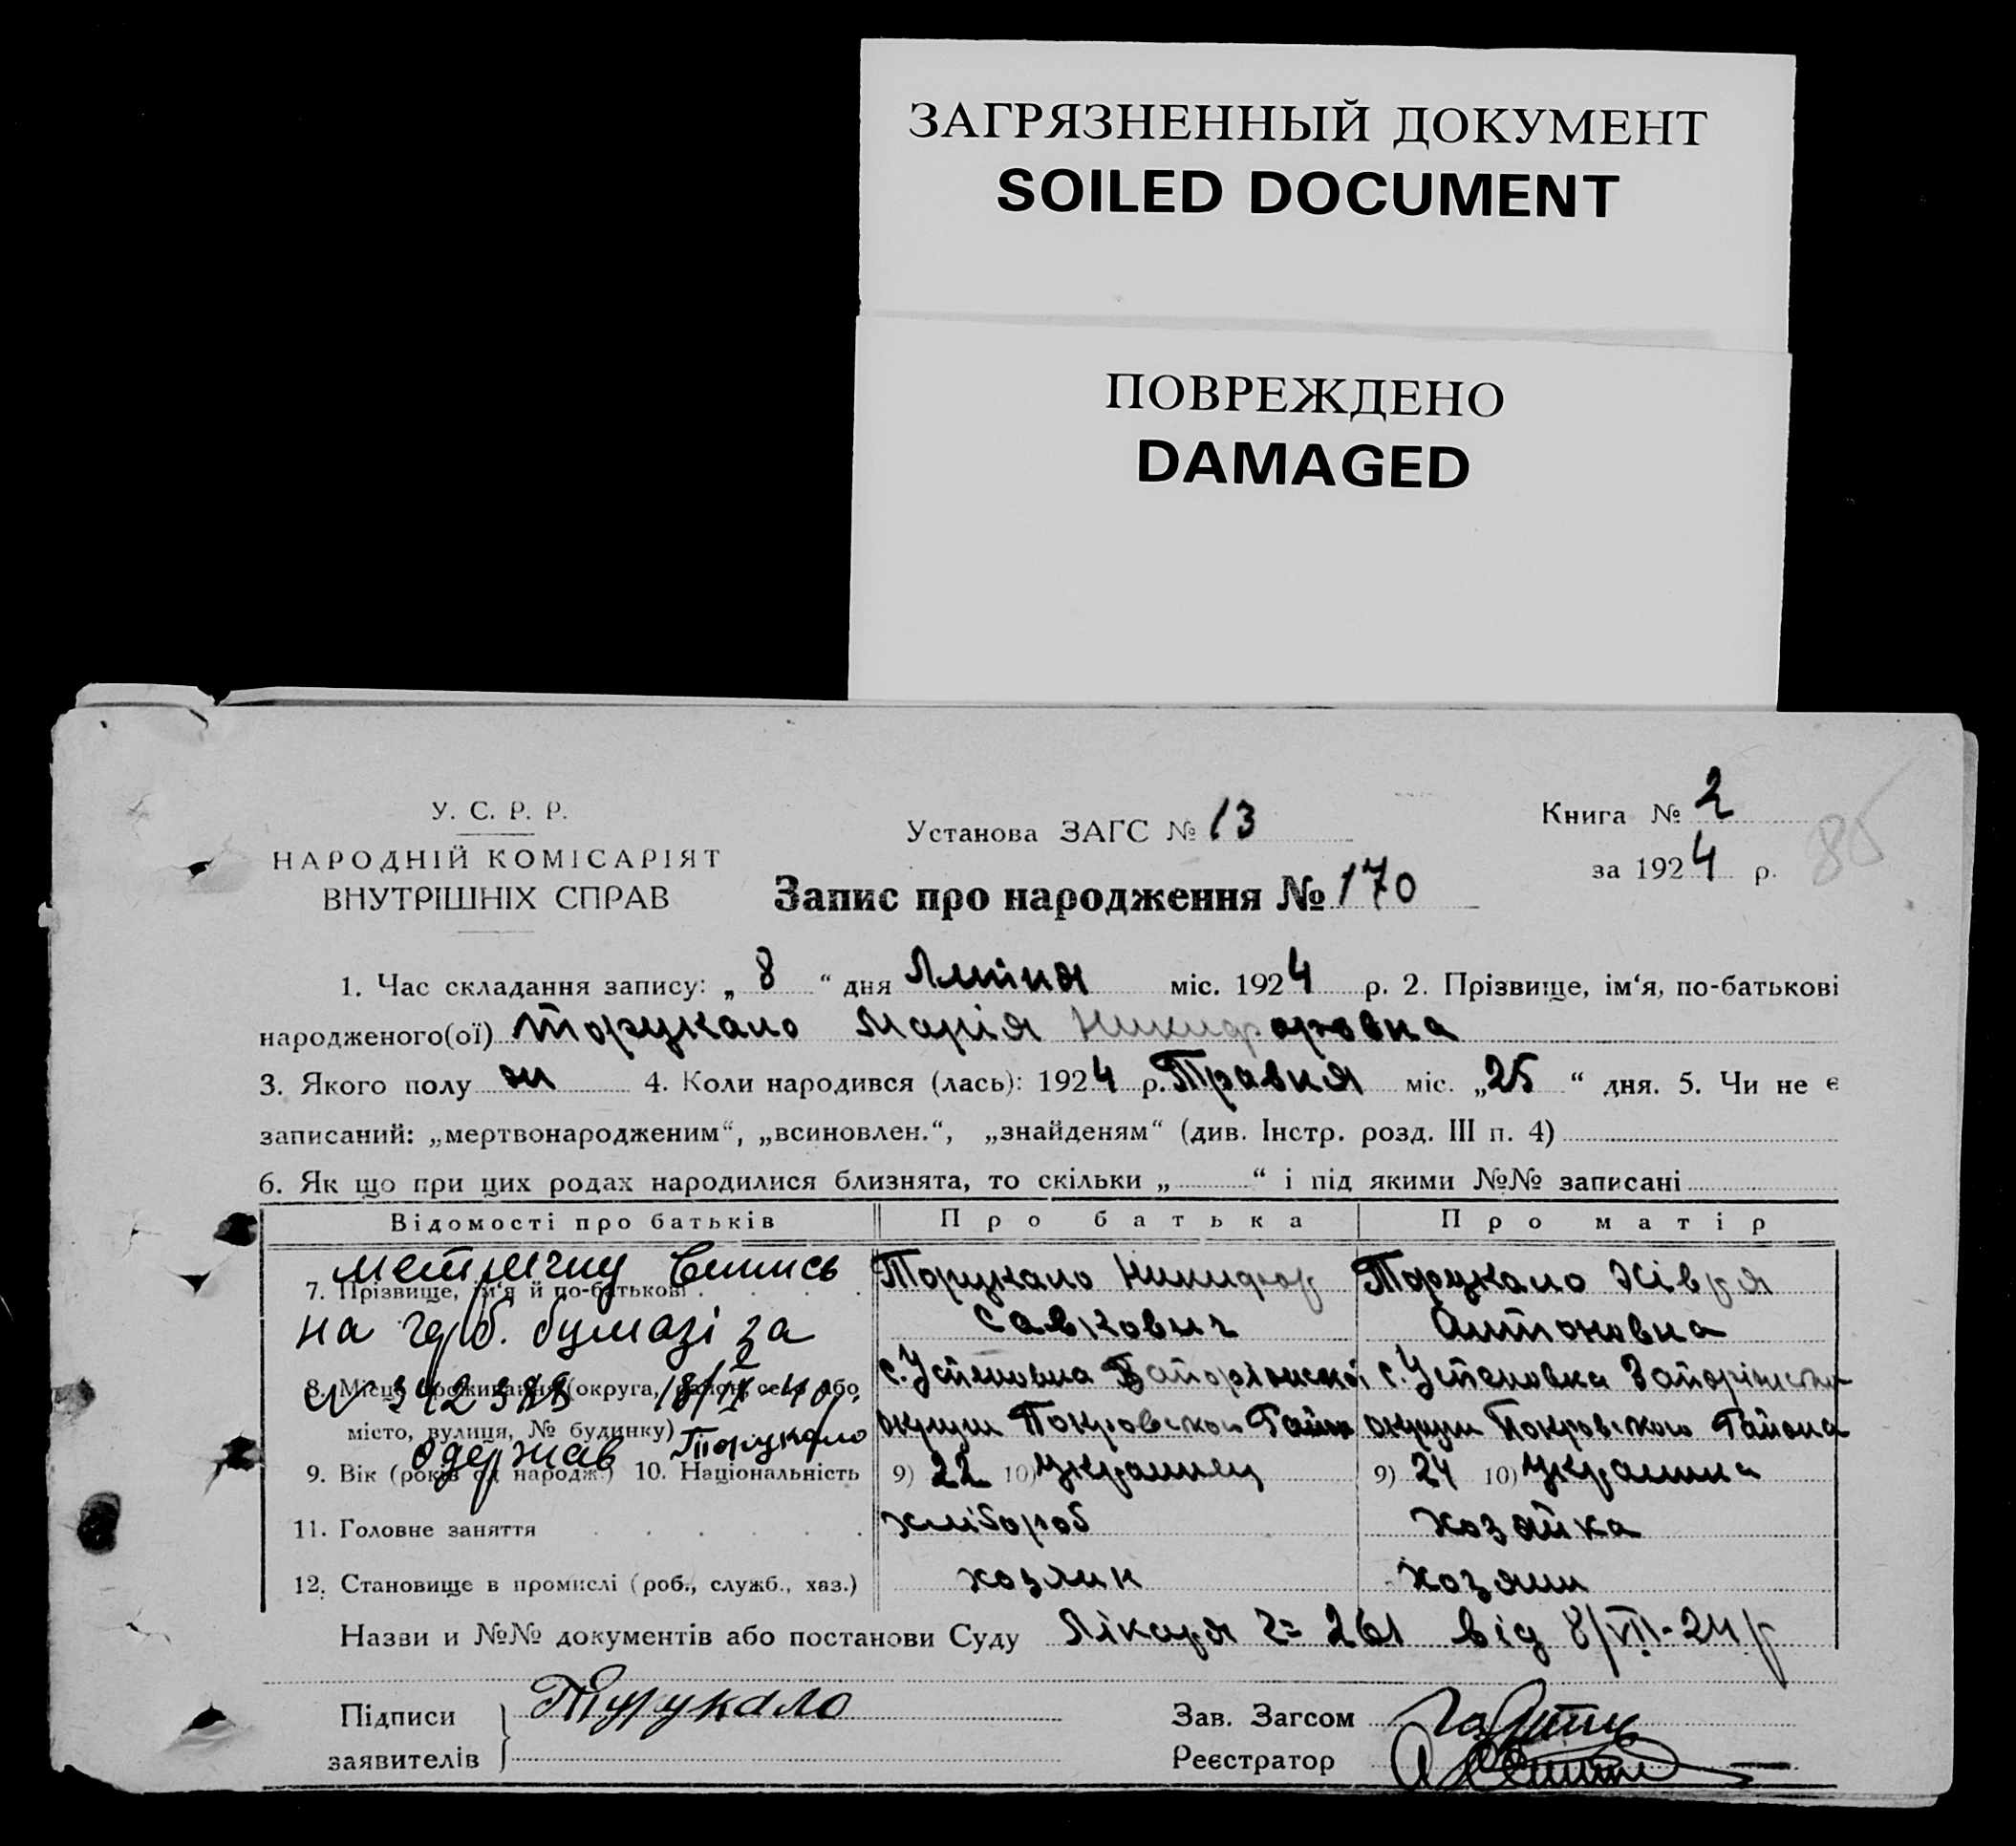 ЗАГРЯЗНЕННЫЙ ДОКУМЕНТ
SOILED DOCUMENT
ПОВРЕЖДЕНО
DAMAGED
У. С. Р. Р.
НАРОДНІЙ КОМІСАРІЯТ
ВНУТРІШНІХ СПРАВ
Установа ЗАГС № 13
Книга № 2
за 1924 р.
85
Запис про народження № 170
1. Час складання запису: „ 8 “ дня Липня міс. 1924 р. 2. Прізвище, ім‘я, по-батькові
народженого(ої) Торукало Марія Никифоровна
3. Якого полу ж 4. Коли народився (лась): 1924 р. Травня міс. „25 “ дня. 5. Чи не є
записаний: „мертвонародженим“, „всиновлен.“, „знайденям“ (див. Інстр. розд. III п. 4)
6. Як що при цих родах народилися близнята, то скільки „ “ і під якими №№ записані
Відомості про батьків Про батька Про матір
метричну Випись
7. Прізвище, ім‘я й по-батькові Торукало Никифор Торукало Хівря
на герб. бумазі за Савкович Антоновна
№ 342388 18/IX-40р.
8. Місце проживання (округа, район, село або с. Успеновка Запоріжської с. Успеновка
місто, вулиця, № будинку) округи Покровского Района округи Покровского Района
одержав Торукало
9. Вік (років од народж.) 10. Національність 9) 22 10) Украинец 9) 24 10) Украинка
11. Головне заняття хлібороб хозяйка
12. Становище в промислі (роб., служб., хаз.) хозяин хозяин
Назви и №№ документів або постанови Суду Лікаря 261 від 8/VII-24 р
Підписи Турукало
заявителів
Зав. Загсом
Реєстратор